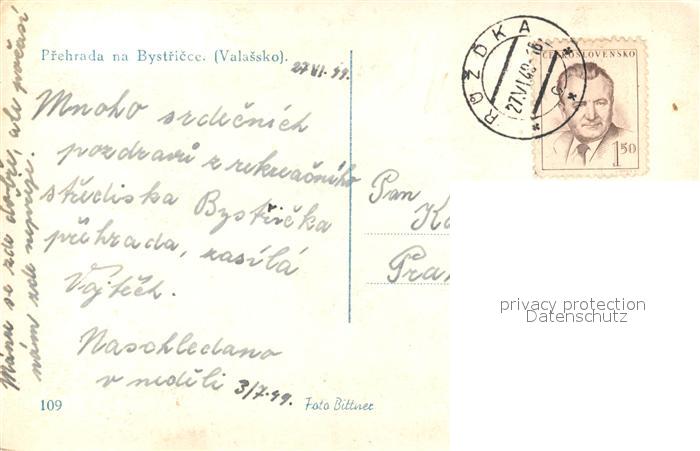 Přehrada na Bystřičce. (Valašsko).
27 VI. 49.
Mnoho srdečních
pozdravů z rekreačního
střediska Bystřička
přehrada, zasílá
Vojtěch.
Naschledano
v neděli 3/7.49.
Máme se zde dobře, ale počasí
nám zde nepřeje.
RŮŽĎKA
27.VI.49
ČESKOSLOVENSKO
1.50
Pan
Pra
109
Foto Bittner
privacy protection
Datenschutz